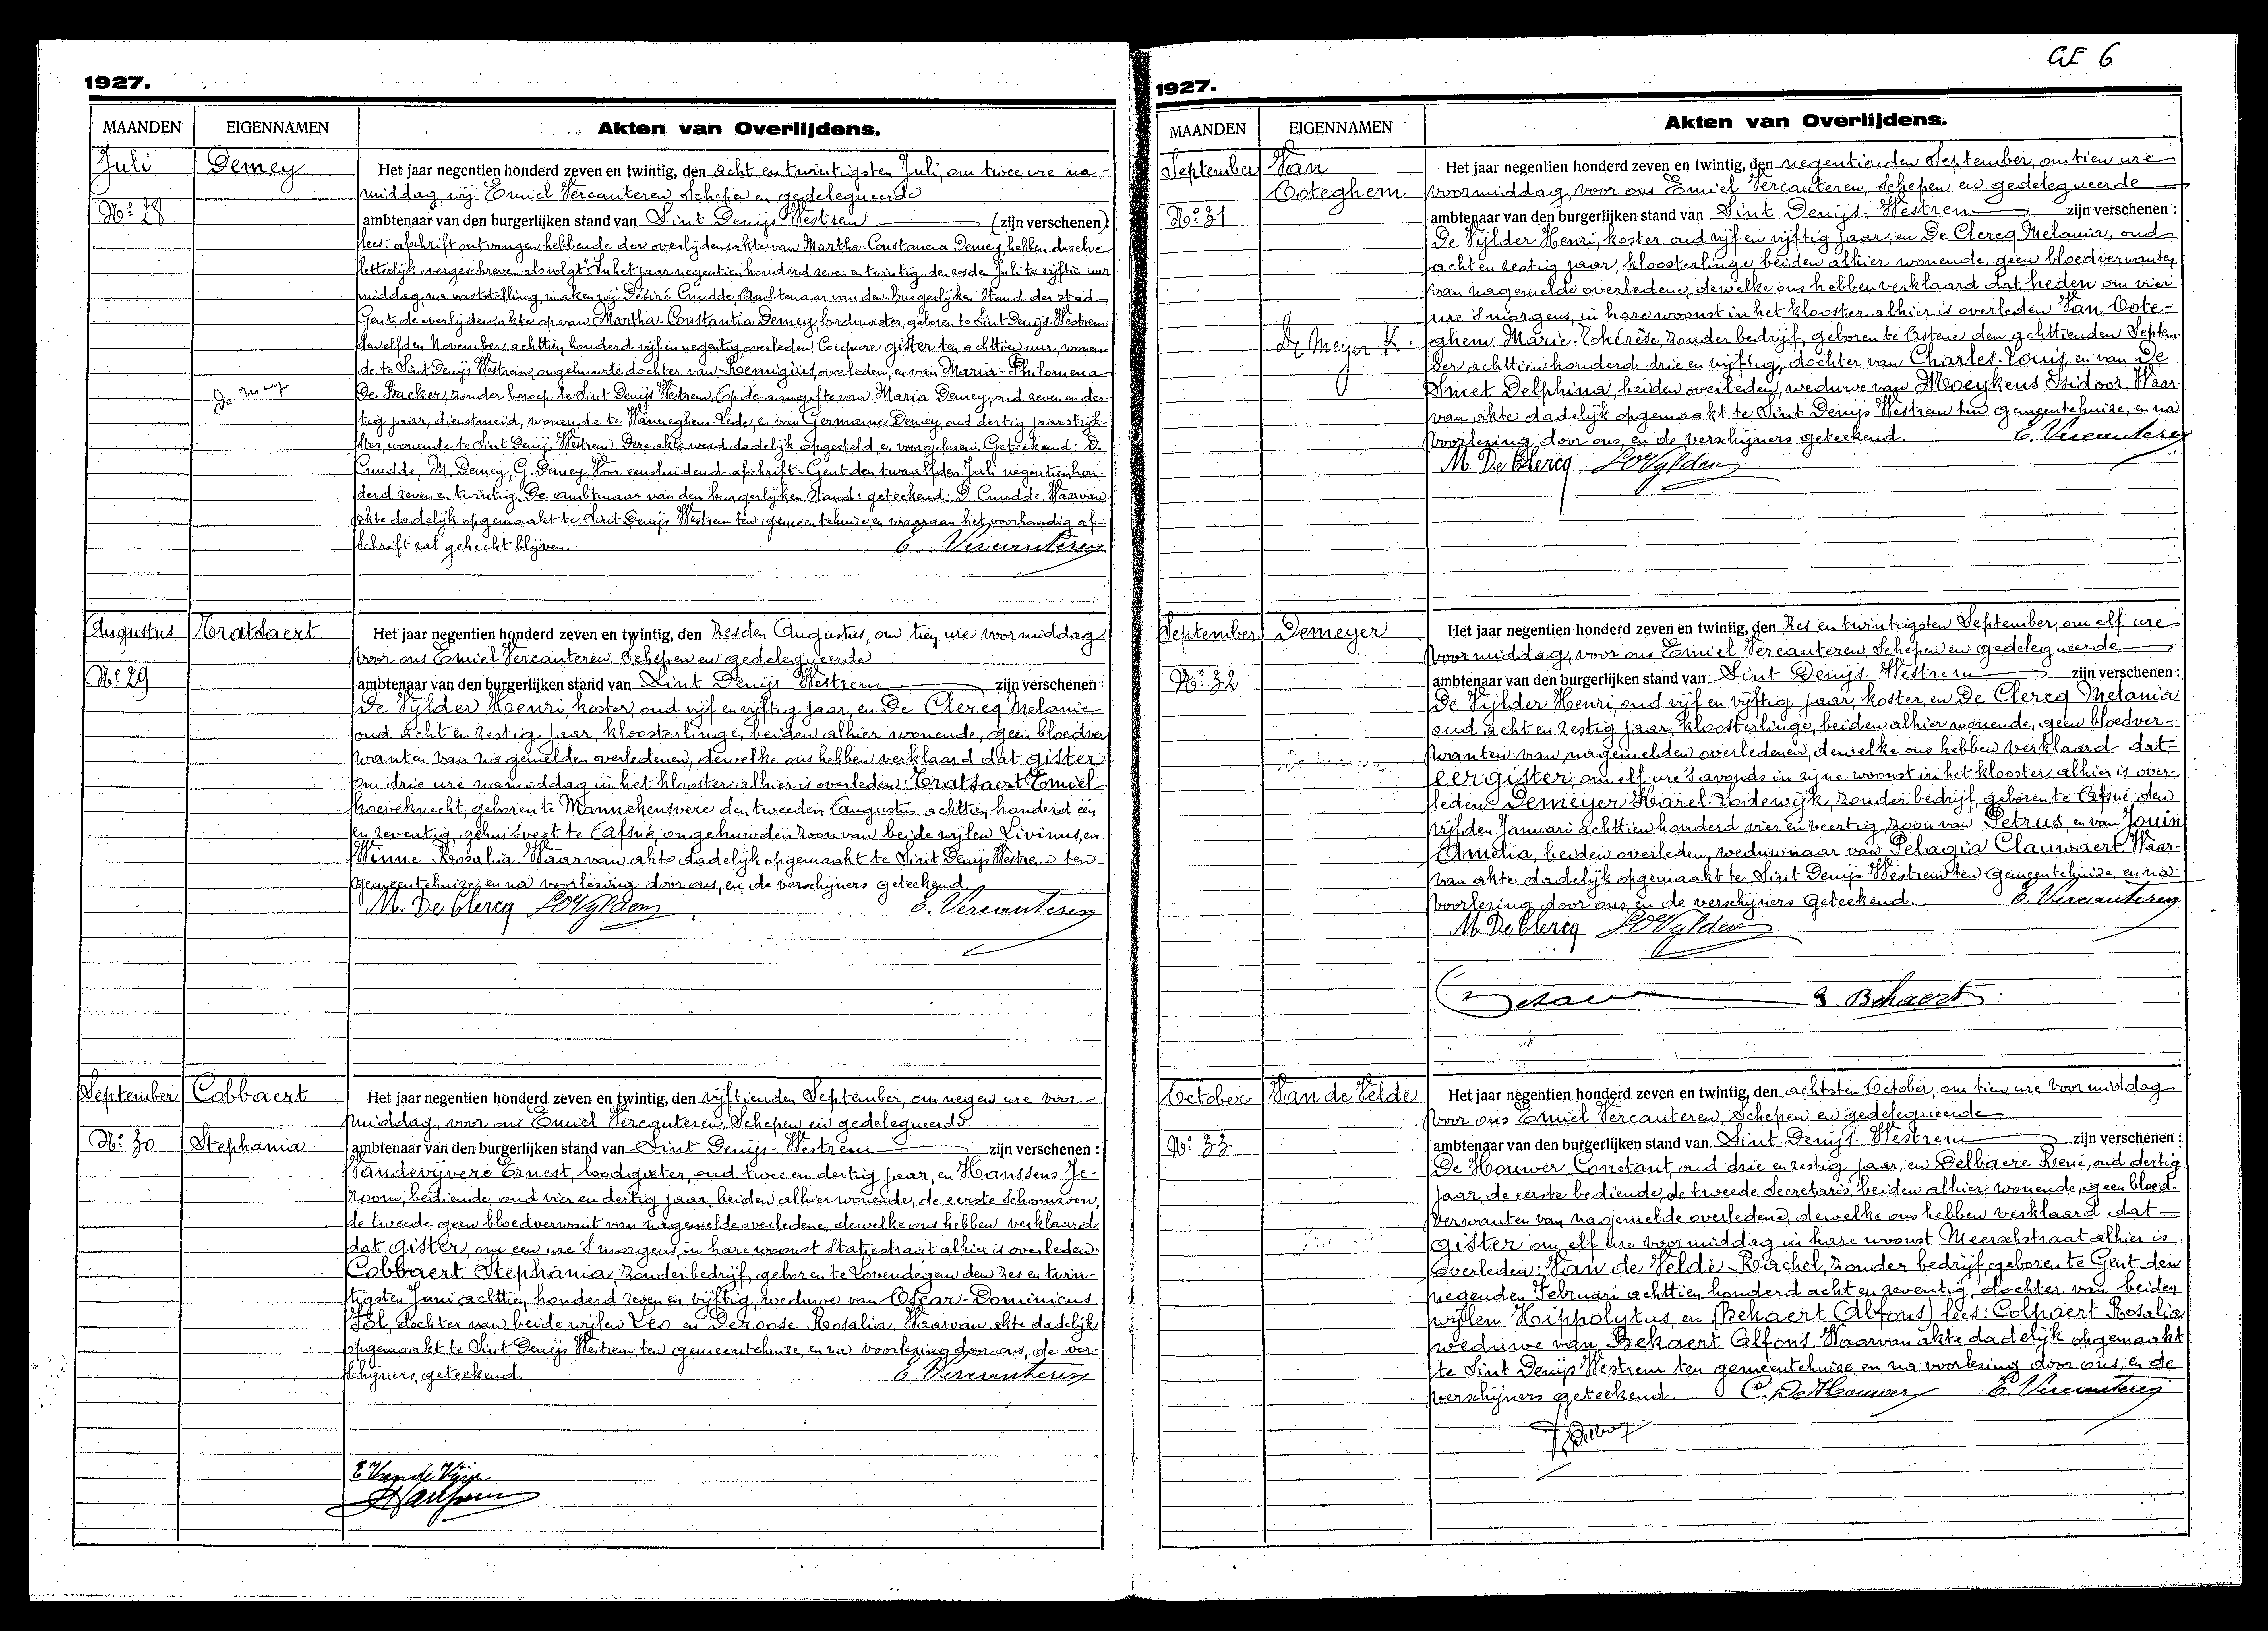 GE 6
1927.
MAANDEN
EIGENNAMEN
Akten van Overlijdens.
Juli
Demey
No: 28
De mey
Het jaar negentien honderd zeven en twintig, den acht en twintigsten Juli, om twee ure na-
middag, wij Emiel Vercauteren Schepen en gedelegueerde
ambtenaar van den burgerlijken stand van Sint Denijs Westrem (zijn verschenen)
lees: afschrift ontvangen hebbende der overlijdensakte van Martha-Constancia Demey, hebben dezelve
letterlijk overgeschreven als volgt "In het jaar negentien honderd zeven en twintig, den zesden Juli te vijftien uur
middag, na vaststelling, maken wij Désiré Cnudde, Ambtenaar van den Burgerlijken Stand der stad
Gent, de overlijdensakte op van Martha-Constantia Demey, borduurster, geboren te Sint Denijs-Westrem
den elfden November achttien honderd vijf en negentig, overleden Coupure gister ten achttien uur, wonen-
de te Sint Denijs Westrem, ongehuwde dochter van Remigius, overleden, en van Maria-Philomena
De Backer, zonder beroep te Sint Denijs Westrem, Op de aangifte van Maria Demey, oud zeven en der-
tig jaar, dienstmeid, wonende te Wanneghem-Lede, en van Germaine Demey, oud dertig jaar strijk-
ster, wonende te Sint Denijs Westrem. Deze akte werd dadelijk opgesteld en voorgelezen. Geteekend: D.
Cnudde, M. Demey, G. Demey. Voor eensluidend afschrift: Gent den twaalfden Juli negentien hon-
derd zeven en twintig. De ambtenaar van den burgerlijken Stand: geteekend: D. Cnudde. Waarvan
akte dadelijk opgemaakt te Sint-Denijs Westrem ten gemeentehuize, en waaraan het voorhandig af-
schrift zal gehecht blijven. E. Vercauteren
Augustus
Tratsaert
No: 29
Het jaar negentien honderd zeven en twintig, den zesden Augustus, om tien ure voormiddag
voor ons Emiel Vercauteren, Schepen en gedelegueerde
ambtenaar van den burgerlijken stand van Sint Denijs Westrem zijn verschenen:
De Vijlder Henri, koster, oud vijf en vijftig jaar, en De Clercq Melanie
oud acht en zestig jaar, kloosterlinge, beiden alhier wonende, geen bloedver
wanten van nagemelden overledenen, dewelke ons hebben verklaard dat gister
om drie ure namiddag in het klooster alhier is overleden: Tratsaert Emiel
hoeveknecht, geboren te Mannekensvere den tweeden Augustus achttien honderd één
en zeventig, gehuisvest te Afsné, ongehuwden zoon van beide wijlen Livinus, en
Winne Rosalia. Waarvan akte dadelijk opgemaakt te Sint Denijs Westrem ten
gemeentehuize, en na voorlezing door ons, en de verschijners geteekend.
M. De Clercq HDVylder E. Vercauteren
September
Cobbaert
No: 30
Stephania
Het jaar negentien honderd zeven en twintig, den vijftienden September, om negen ure voor-
middag, voor ons Emiel Vercauteren, Schepen en gedelegueerde
ambtenaar van den burgerlijken stand van Sint Denijs-Westrem zijn verschenen:
Vandevijvere Ernest, loodgieter, oud twee en dertig jaar, en Hanssens Je-
room, bediende, oud vier en dertig jaar, beiden alhier wonende, de eerste schoonzoon,
de tweede geen bloedverwant van nagemelde overledene, dewelke ons hebben verklaard
dat gister, om een ure 's morgens, in hare woonst Statiestraat alhier is overleden:
Cobbaert Stephania, zonder bedrijf, geboren te Lovendegem den zes en twin-
tigsten Juni achttien honderd zeven en vijftig, weduwe van Oscar-Dominicus
Tol, dochter van beide wijlen Leo en Deroose Rosalia. Waarvan akte dadelijk
opgemaakt te Sint Denijs Westrem ten gemeentehuize, en na voorlezing door ons, de ver-
schijners, geteekend. E. Vercauteren
E Van de Vijve
JHanssens
1927.
MAANDEN
EIGENNAMEN
Akten van Overlijdens.
September
Van
Ooteghem
No: 31
De Meyer K.
Het jaar negentien honderd zeven en twintig, den negentienden September, om tien ure
voormiddag, voor ons Emiel Vercauteren, Schepen en gedelegueerde
ambtenaar van den burgerlijken stand van Sint Denijs-Westrem zijn verschenen:
De Vijlder Henri, koster, oud vijf en vijftig jaar, en De Clercq Melania, oud
acht en zestig jaar, kloosterlinge, beiden alhier wonende, geen bloedverwanten
van nagemelde overledene, dewelke ons hebben verklaard dat heden om vier
ure 's morgens, in hare woonst in het klooster alhier is overleden Van Oote-
ghem Marie-Thérèse, zonder bedrijf, geboren te Astene den achttienden Septem-
ber achttien honderd drie en vijftig, dochter van Charles-Louis, en van De
Smet Delphina, beiden overleden, weduwe van Moeykens Isidoor. Waar-
van akte dadelijk opgemaakt te Sint Denijs Westrem ten gemeentehuize, en na
voorlezing door ons, en de verschijners geteekend. E. Vercauteren
M. De Clercq HDVylder
September
Demeyer
No: 32
Het jaar negentien honderd zeven en twintig, den zes en twintigsten September, om elf ure
voormiddag, voor ons Emiel Vercauteren, Schepen en gedelegueerde
ambtenaar van den burgerlijken stand van Sint Denijs-Westrem zijn verschenen:
De Vijlder Henri, oud vijf en vijftig jaar, koster, en De Clercq Melania
oud acht en zestig jaar, kloosterlinge, beiden alhier wonende, geen bloedver-
wanten van nagemelden overledenen, dewelke ons hebben verklaard dat
eergister, om elf ure 's avonds in zijne woonst in het klooster alhier is over-
leden: Demeyer Karel-Lodewijk, zonder bedrijf, geboren te Afsné den
vijfden Januari achttien honderd vier en veertig, zoon van Petrus, en van Jouin
Amelia, beiden overleden, weduwnaar van Pelagia Clauwaert. Waar-
van akte dadelijk opgemaakt te Sint Denijs Westrem ten gemeentehuize, en na
voorlezing door ons, en de verschijners geteekend. E. Vercauteren
M. De Clercq HDVylder
Behaert
October
Van de Velde
No: 33
Het jaar negentien honderd zeven en twintig, den achtsten October, om tien ure voormiddag
voor ons Emiel Vercauteren, Schepen en gedelegueerde
ambtenaar van den burgerlijken stand van Sint Denijs-Westrem zijn verschenen:
De Houwer Constant, oud drie en zestig jaar, en Delbaere René, oud dertig
jaar, de eerste bediende, de tweede Secretaris, beiden alhier wonende, geen bloed-
verwanten van nagemelde overledene, dewelke ons hebben verklaard dat
gister om elf ure voormiddag in hare woonst Meerschstraat alhier is
overleden: Van de Velde Rachel, zonder bedrijf, geboren te Gent den
negenden Februari achttien honderd acht en zeventig, dochter van beiden
wijlen Hippolytus, en (Bekaert Alfons) lees: Colpaert Rosalia
weduwe van Bekaert Alfons. Waarvan akte dadelijk opgemaakt
te Sint Denijs Westrem ten gemeentehuize, en na voorlezing door ons, en de
verschijners geteekend. C. De Houwer E. Vercauteren